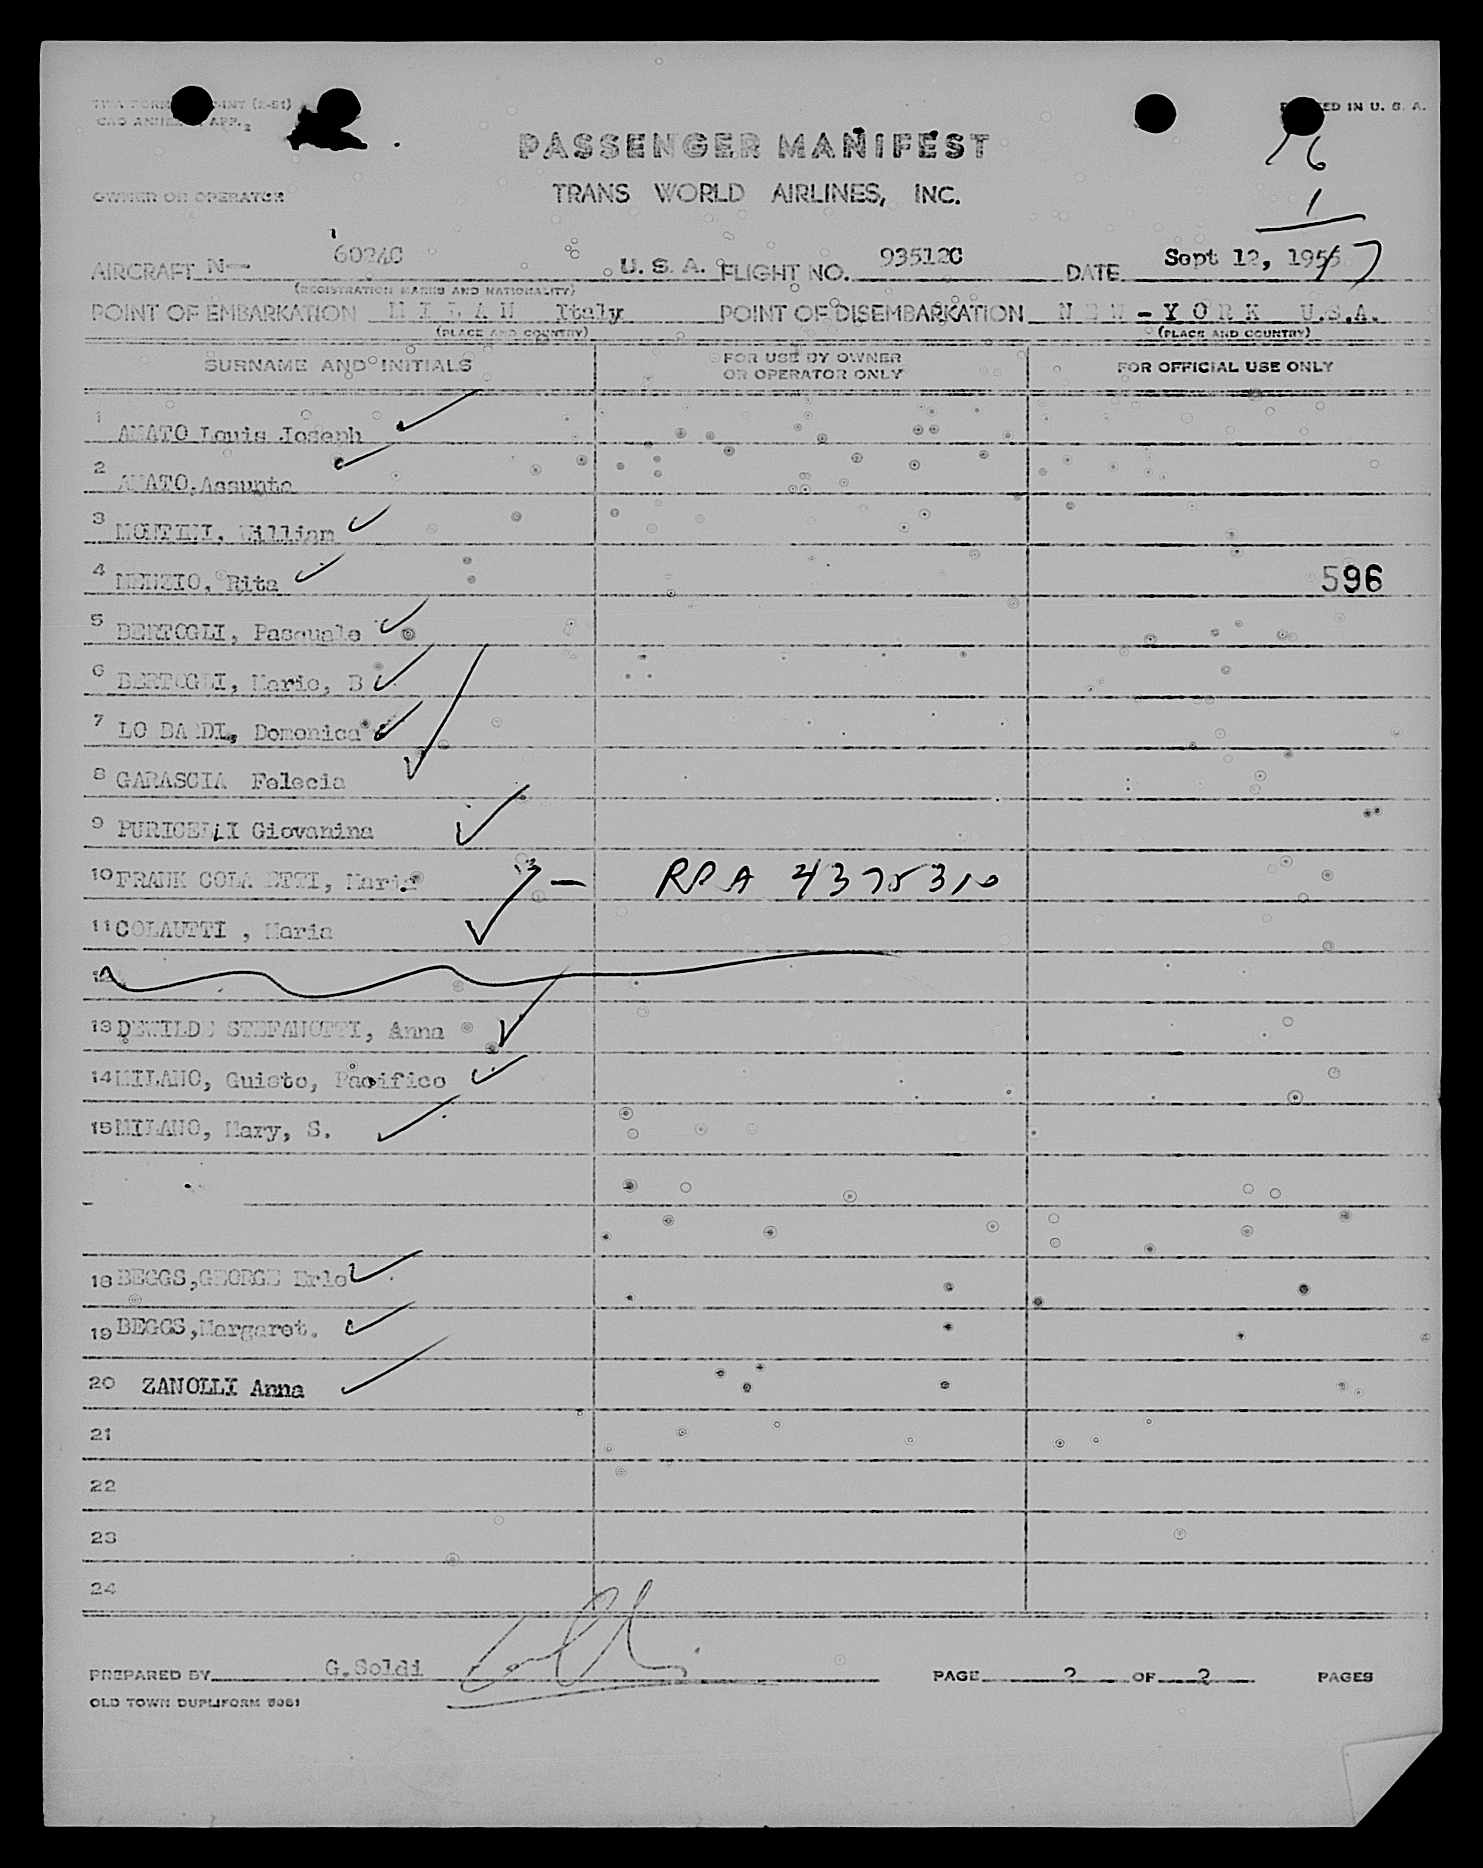 PRINTED IN U. S. A.
PASSENGER MANIFEST
OWNER OR OPERATOR
TRANS WORLD AIRLINES, INC.
1
AIRCRAFT N- 6024C U. S. A. FLIGHT NO. 93512C DATE Sept 12, 1955 7
(REGISTRATION MARKS AND NATIONALITY)
POINT OF EMBARKATION M I L A N Italy POINT OF DISEMBARKATION N E W - Y O R K U.S.A.
(PLACE AND COUNTRY) (PLACE AND COUNTRY)
SURNAME AND INITIALS FOR USE BY OWNER OR OPERATOR ONLY FOR OFFICIAL USE ONLY
1 AMATO Louis Joseph
2 AMATO, Assunta
3 MONTINI, William
4 MENZIO, Rita 596
5 BERTOGLI, Pasquale
6 BERTOGLI, Mario, B
7 LO BARDI, Domenica
8 GARASCIA Felecia
9 PURICELLI Giovanina
10 FRANK COLAUTTI, Maria 13 - RPA 4375310
11 COLAUTTI , Maria
12
13 DEWILDE STEFANOTTI, Anna
14 MILANO, Guisto, Pacifico
15 MILANO, Mary, S.
18 BEGGS,GEORGE Erlo
19 BEGGS,Margaret.
20 ZANOLLI Anna
21
22
23
24
PREPARED BY G.Soldi PAGE 2 OF 2 PAGES
OLD TOWN DUPLIFORM 5081